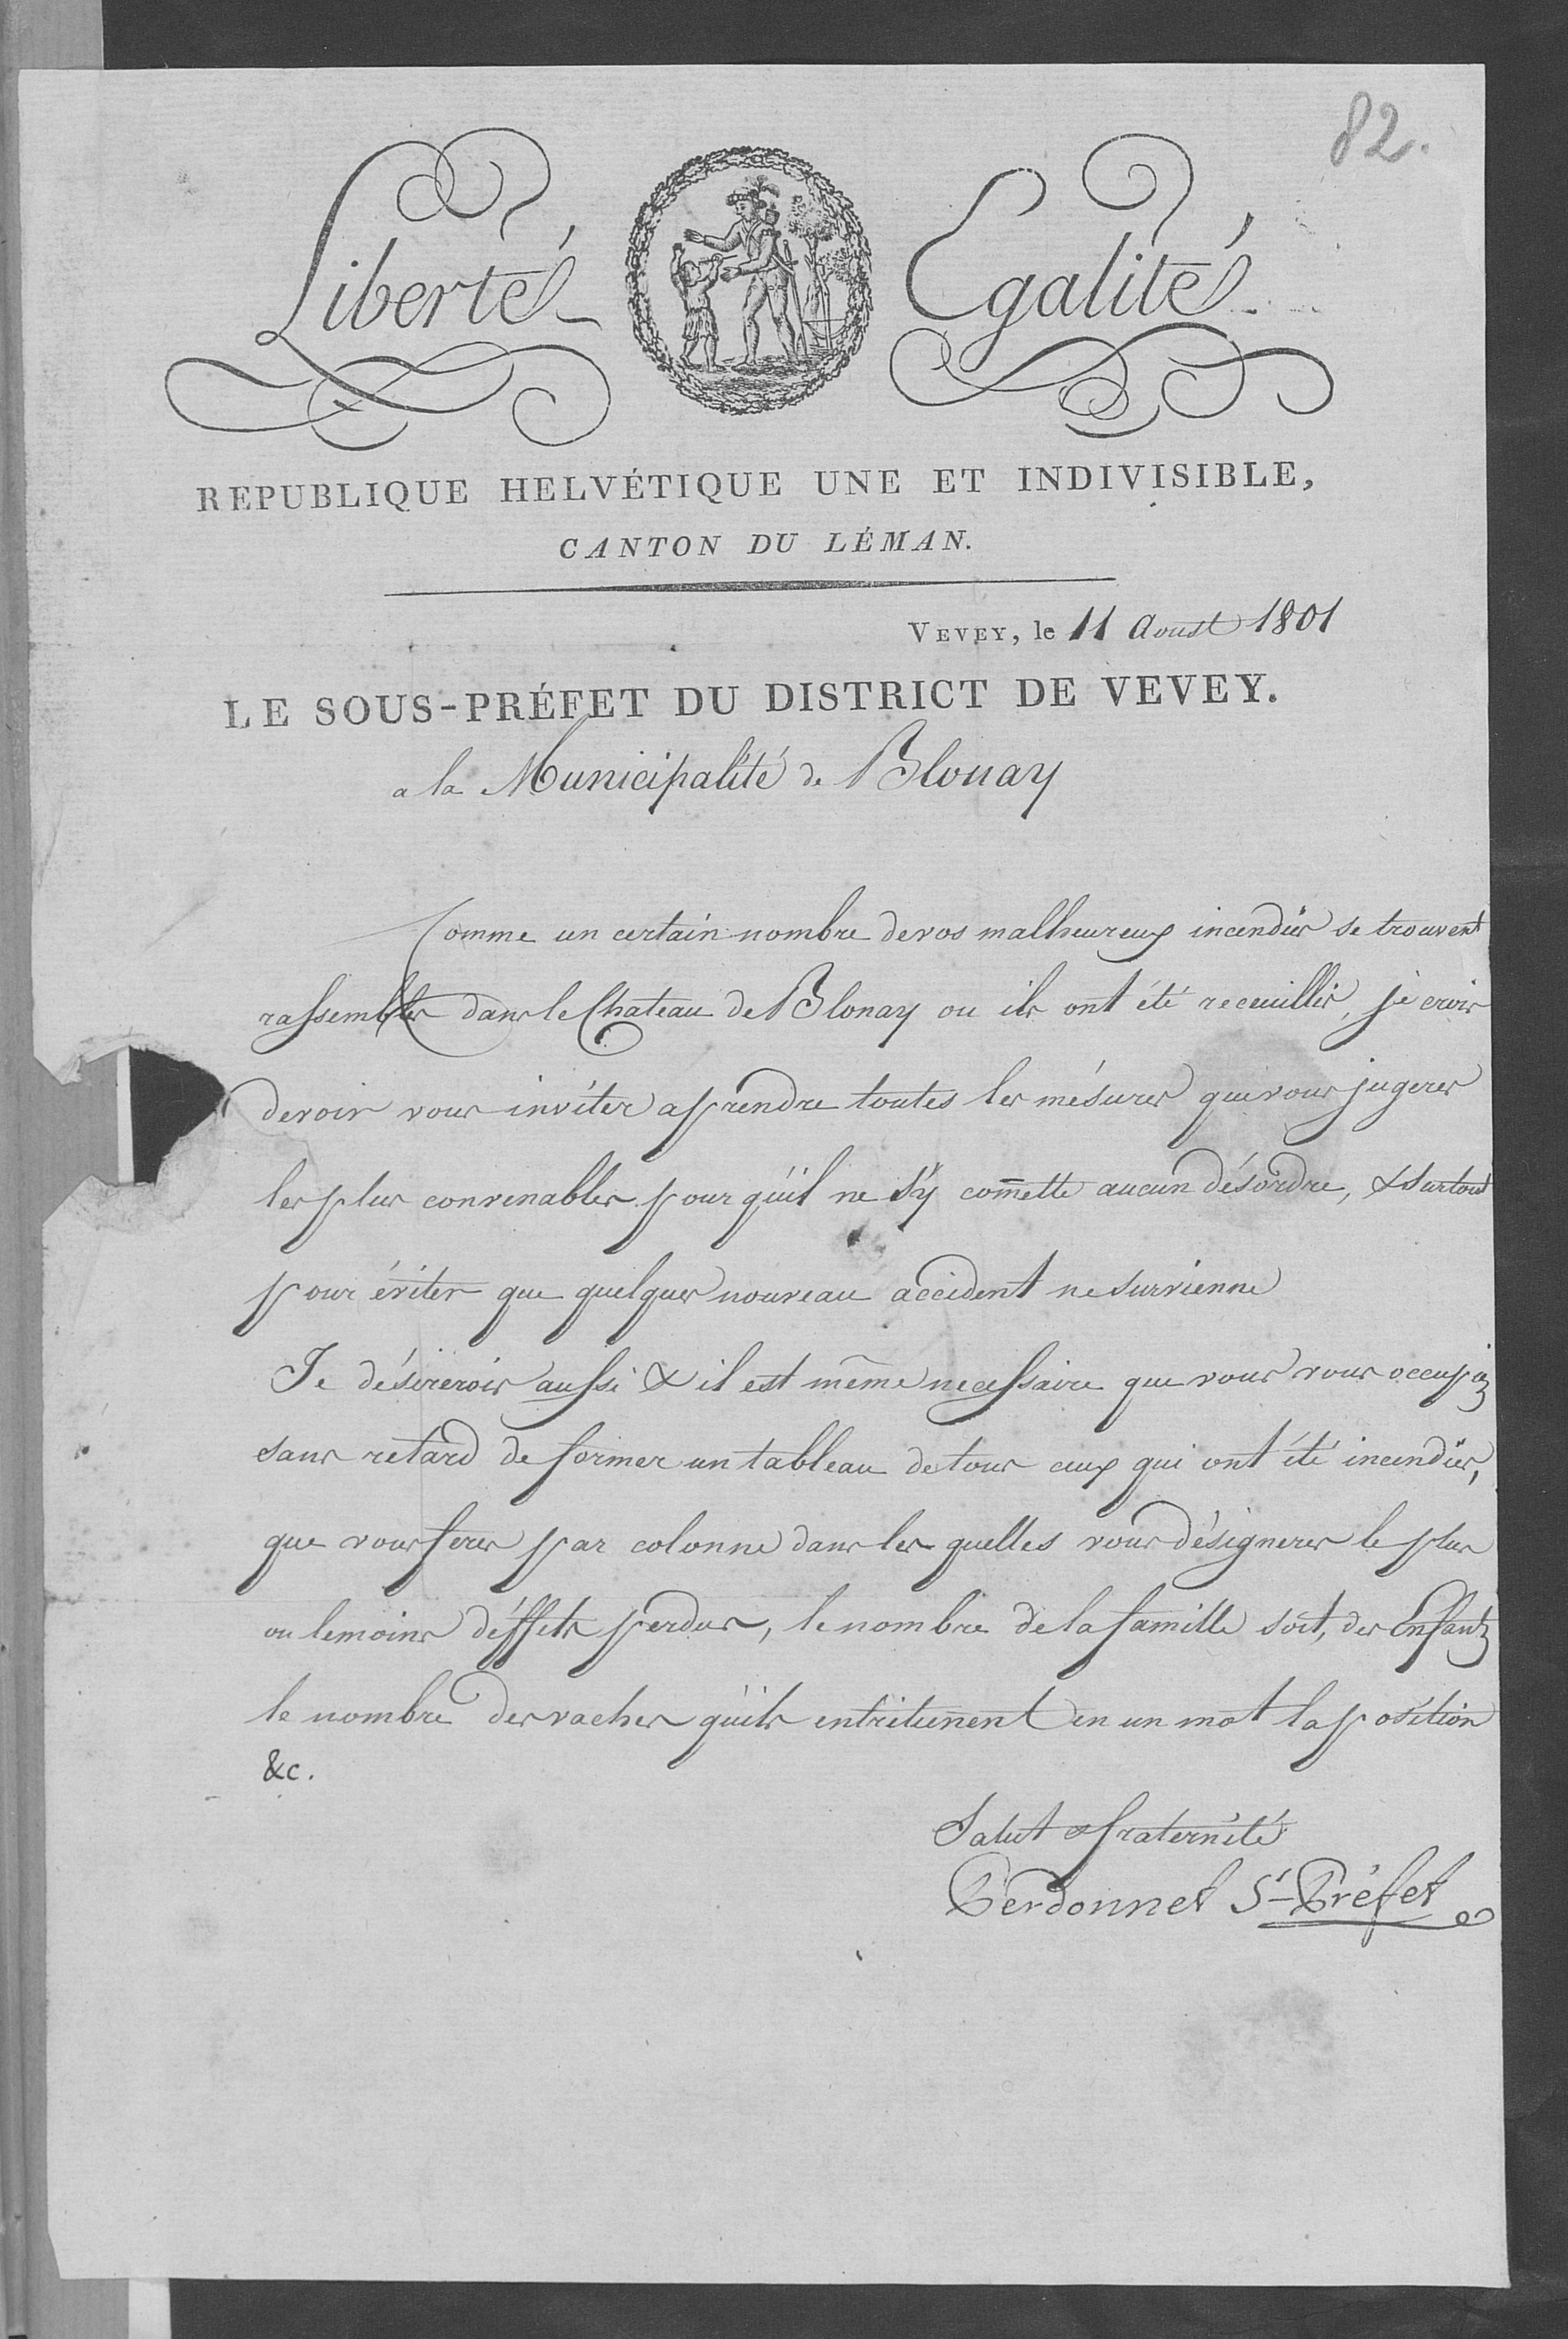 82.
Liberté Egalité
REPUBLIQUE HELVÉTIQUE UNE ET INDIVISIBLE,
CANTON DU LÉMAN.
VEVEY, le 11 Aoust 1801
LE SOUS-PRÉFET DU DISTRICT DE VEVEY.
a la Municipalité de Blonay
Comme un certain nombre de vos malheureux incendiés se trouvent
rassemblés dans le Chateau de Blonay ou ils ont été recueillis, je crois
devoir vous inviter a prendre toutes les mésures que vous jugeres
les plus convenables pour qu'il ne s'y com̄ette aucun désordre, & surtout
pour éviter que quelques nouveau accident ne survienne
Je désirerois aussi & il est même necessaire que vous vous occupiez
sans retard de former un tableau de tous ceux qui ont été incendiés,
que vous feres par colonne dans les quelles vous désigneres le plus
ou le moins d'éffets perdus, le nombre de la famille soit, des Enfantz
le nombre des vaches qu'ils entritien̄ent en un mot la position
&c.
Salut & fraternité
Perdonnet S'-Préfet